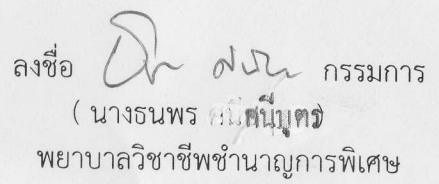 ลงชื่อ กรรมการ
( นางธนพร
พยาบาลวิชาชีพชำนาญการพิเศษ